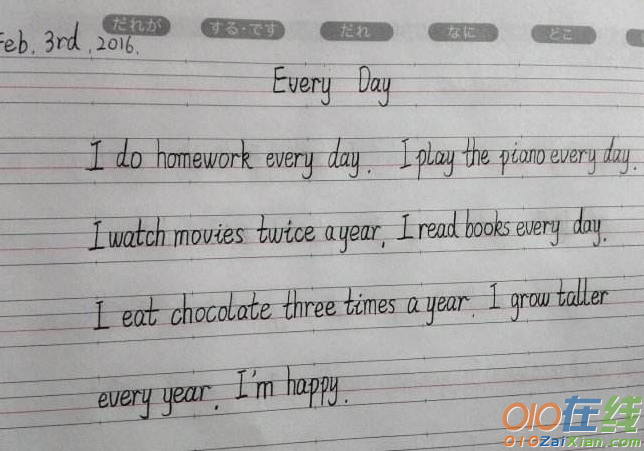 だれが する・です だれ なに どこ
Feb. 3rd, 2016.
Every Day
I do homework every day. I play the piano every day.
I watch movies twice a year. I read books every day.
I eat chocolate three times a year. I grow taller
every year. I'm happy.
010在线
010ZaiXian.com